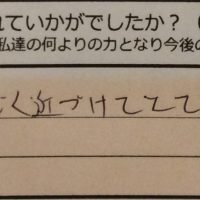 れていかがでしたか？（
私達の何よりの力となり今後の
く近づけててて